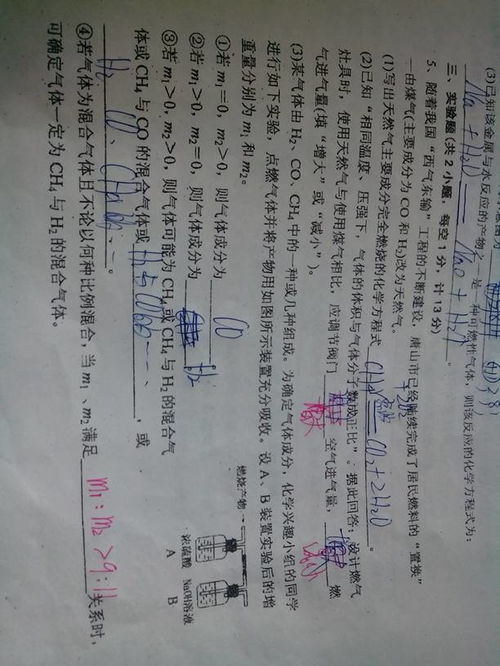 (3)已知该金属与水反应的产物之一是一种可燃性气体,则该反应的化学方程式为:
Na + H2O —— Na2O + H2↑。
三、实验题(共2小题,每空1分,计13分)
5、随着我国“西气东输”工程的不断建设,唐山市已经陆续完成了居民燃料的“置换”
—由煤气(主要成分为CO和H2)改为天然气。
(1)写出天然气主要成分完全燃烧的化学方程式 CH4+2O2 点燃 CO2+2H2O。
(2)已知“相同温度、压强下,气体的体积与气体分子数成正比”。据此回答:改计燃气
灶具时,使用天然气与使用煤气相比,应调节阀门 增大 空气进气量, 减小 燃
气进气量(填“增大”或“减小”)。
(3)某气体由H2、CO、CH4中的一种或几种组成。为确定气体成分,化学兴趣小组的同学
进行如下实验,点燃气体并将产物用如图所示装置充分吸收。设A、B装置实验后的增
重量分别为m1和m2。
①若m1=0,m2>0,则气体成分为 CO
②若m1>0,m2=0,则气体成分为 H2
③若m1>0,m2>0,则气体可能为CH4或CH4与H2的混合气
体或CH4与CO的混合气体或 H2与CO 、 ,或
H2、CO、CH4 。
④若气体为混合气体且不论以何种比例混合,当m1、m2满足 m1:m2>9:11 关系时,
可确定气体一定为CH4与H2的混合气体。
燃烧产物
浓硫酸 NaOH溶液
A B